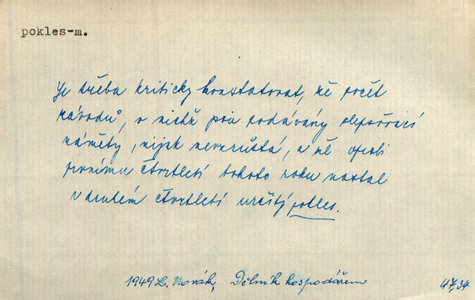 pokles-m.
Je třeba kriticky konstatovat, že počet
závodů, v nichž jsou podávány zlepšovací
náměty, nijak nevzrůstá, a že oproti
prvnímu čtvrtletí tohoto roku nastal
v druhém čtvrtletí určitý pokles.
1949 L. Novák, Dělník hospodářem 47,34